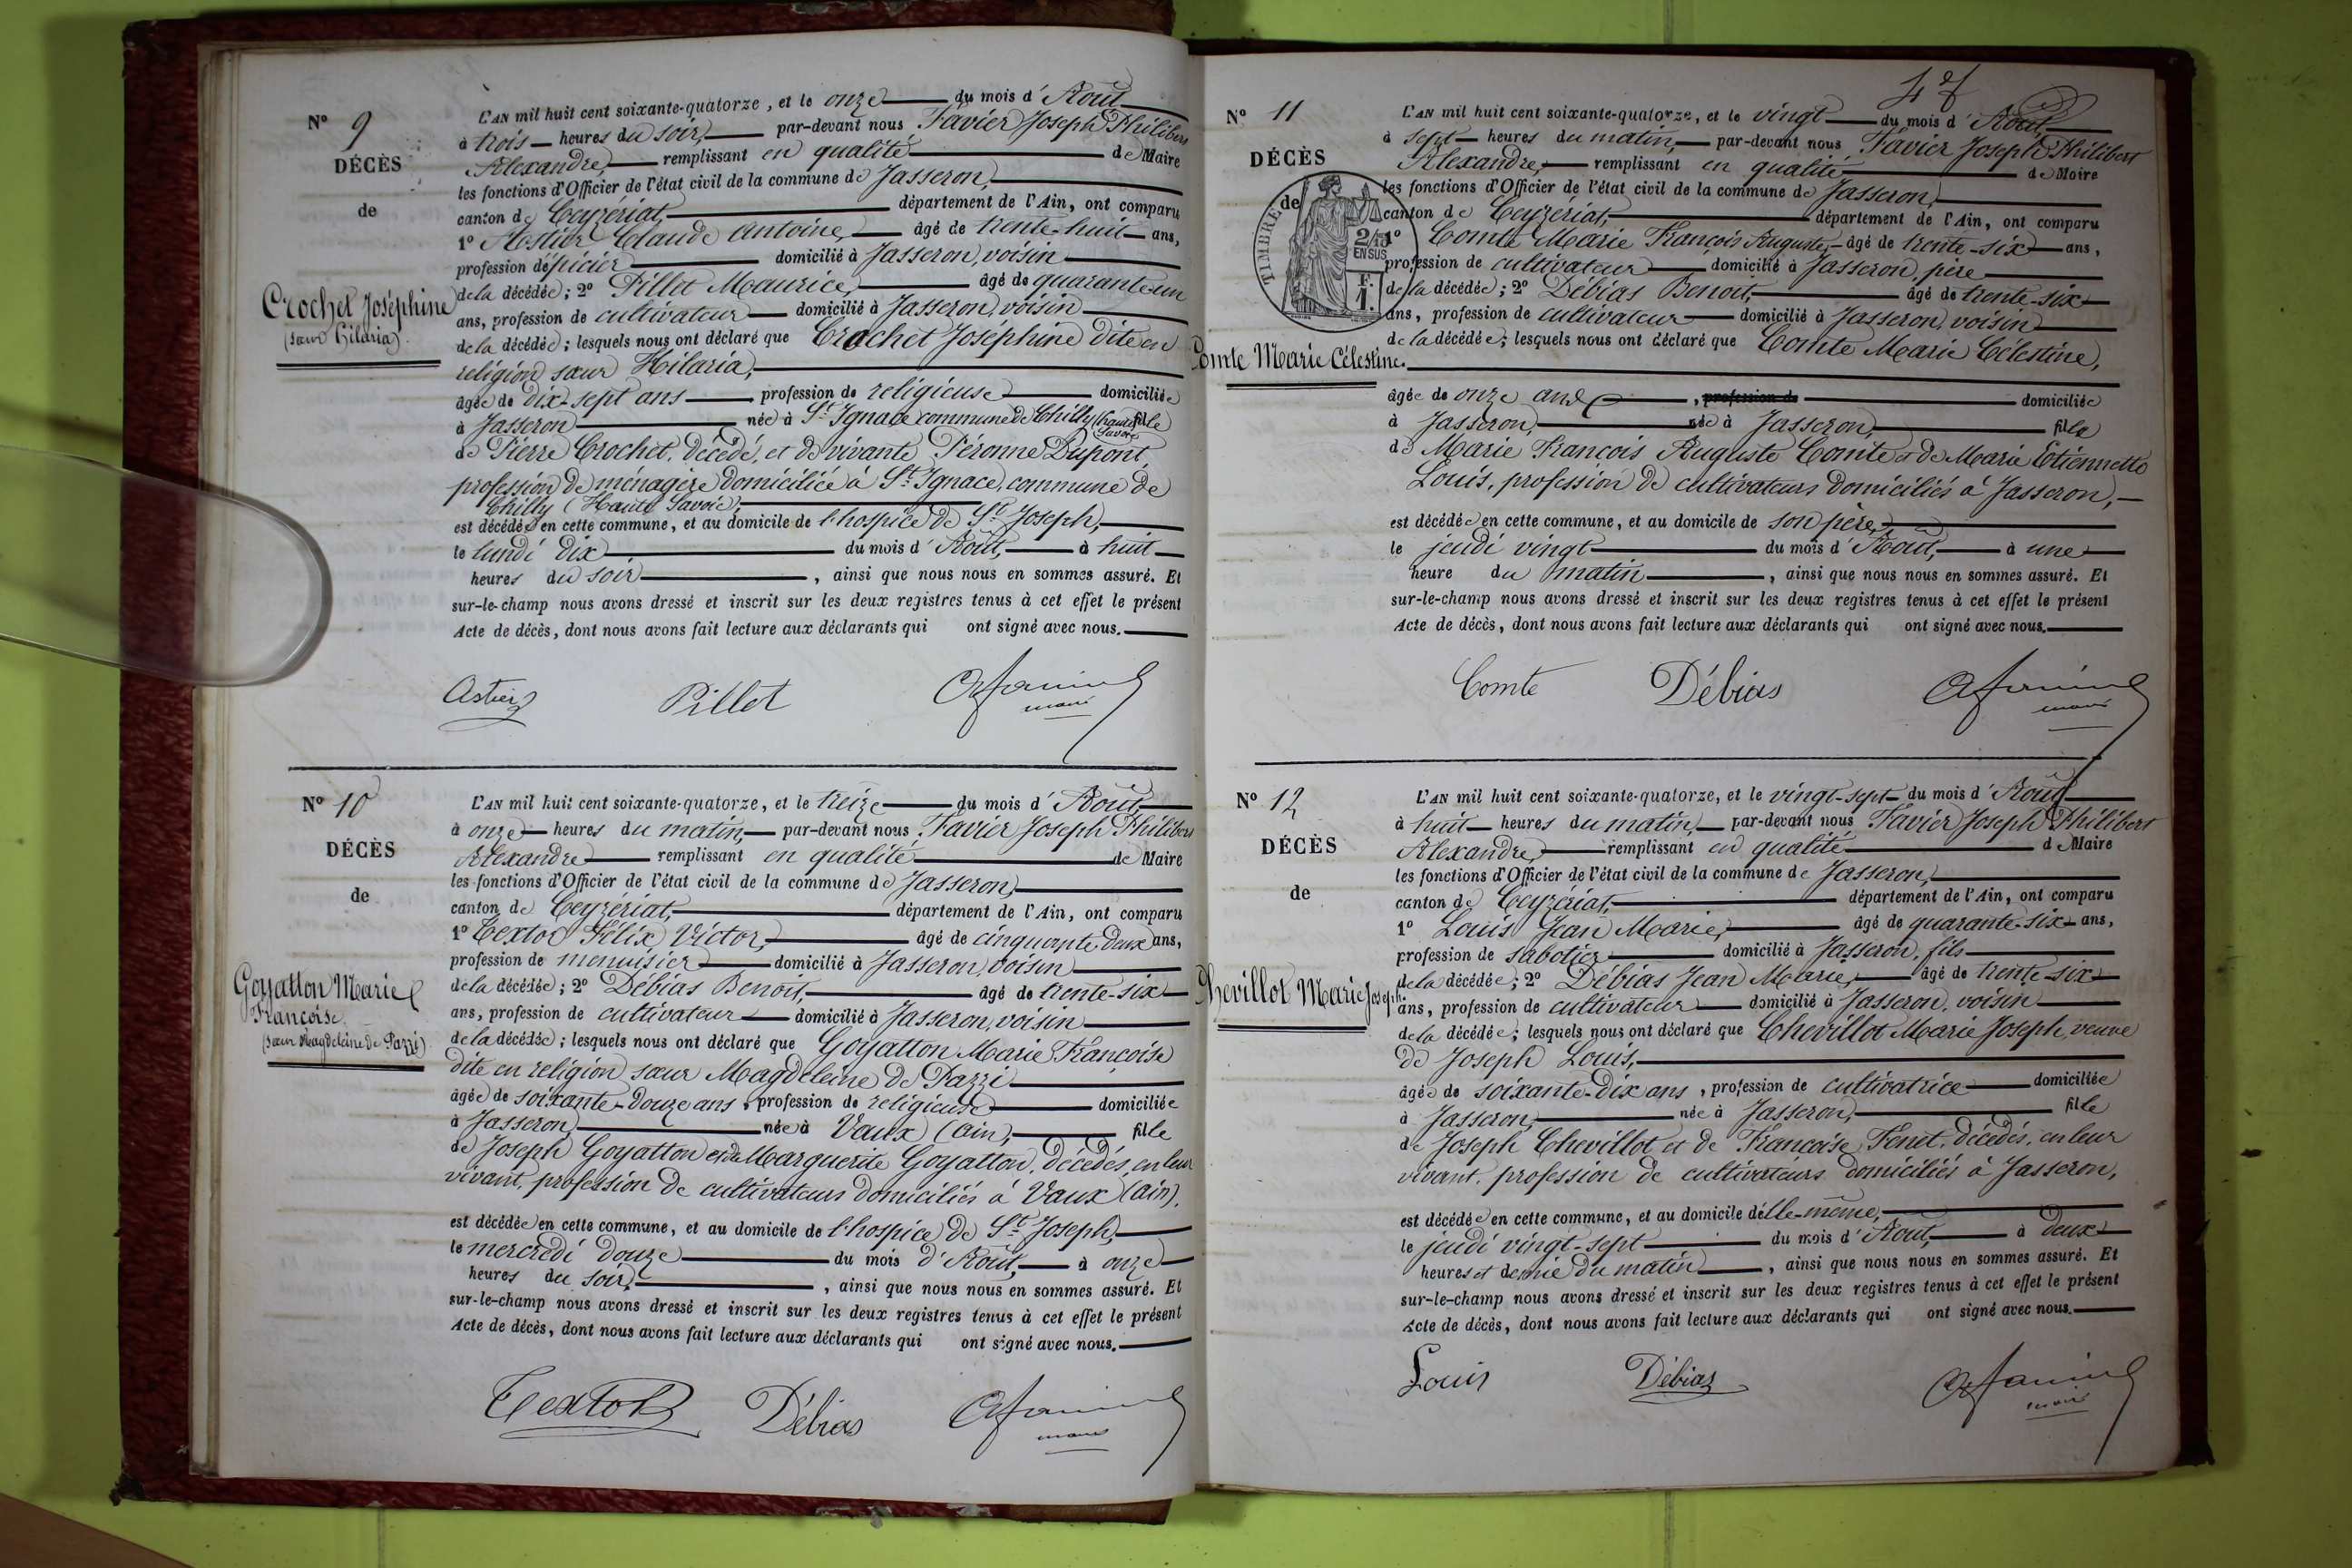 N° 9
DÉCÈS
de
Crochet Joséphine
(sœur Hilaria)
L'AN mil huit cent soixante-quatorze, et le onze du mois d'Août
à trois heures du soir, par-devant nous Favier Joseph Philibert
Alexandre, remplissant en qualité de Maire
les fonctions d'Officier de l'état civil de la commune de Jasseron,
canton de Ceyzériat, département de l'Ain, ont comparu
1° Astier Claude Antoine, âgé de trente-huit ans,
profession d'épicier domicilié à Jasseron, voisin
de la décédée; 2° Pillet Maurice, âgé de quarante-un
ans, profession de cultivateur domicilié à Jasseron, voisin
de la décédée; lesquels nous ont déclaré que Crochet Joséphine dite en
religion sœur Hilaria,
âgée de dix-sept ans profession de religieuse domiciliée
à Jasseron née à St Ignace commune de Chilly (haute Savoie) fille
de Pierre Crochet, décédé, et de vivante Péronne Dupont,
profession de ménagère domiciliée à St Ignace, commune de
Chilly (Haute Savoie),
est décédée en cette commune, et au domicile de l'hospice de St Joseph,
le lundi dix du mois d'Août, à huit
heures du soir, ainsi que nous nous en sommes assuré. Et
sur-le-champ nous avons dressé et inscrit sur les deux registres tenus à cet effet le présent
Acte de décès, dont nous avons fait lecture aux déclarants qui ont signé avec nous.
Astier Pillet
maire
N° 10
DÉCÈS
de
Goyatton Marie
Françoise
(sœur Magdeleine de Pazzi)
L'AN mil huit cent soixante-quatorze, et le treize du mois d'Août,
à onze heures du matin, par-devant nous Favier Joseph Philibert
Alexandre remplissant en qualité de Maire
les fonctions d'Officier de l'état civil de la commune de Jasseron,
canton de Ceyzériat, département de l'Ain, ont comparu
1° Textor Félix Victor, âgé de cinquante-deux ans,
profession de menuisier domicilié à Jasseron, voisin
de la décédée; 2° Débias Benoit, âgé de trente-six
ans, profession de cultivateur domicilié à Jasseron, voisin
de la décédée; lesquels nous ont déclaré que Goyatton Marie Françoise
dite en religion sœur Magdeleine de Pazzi
âgée de soixante-douze ans, profession de religieuse domiciliée
à Jasseron, née à Vaux (Ain), fille
de Joseph Goyatton et de Marguerite Goyatton, décédés, en leur
vivant, profession de cultivateurs domiciliés à Vaux (Ain).
est décédée en cette commune, et au domicile de l'hospice de St Joseph,
le mercredi douze du mois d'Août, à onze
heures du soir, ainsi que nous nous en sommes assuré. Et
sur-le-champ nous avons dressé et inscrit sur les deux registres tenus à cet effet le présent
Acte de décès, dont nous avons fait lecture aux déclarants qui ont signé avec nous.
Textor Débias
maire
N° 11
DÉCÈS
de
TIMBRE
2/10
EN SUS
F.
1.
Comte Marie Célestine.
L'AN mil huit cent soixante-quatorze, et le vingt du mois d'Août,
à sept heures du matin, par-devant nous Favier Joseph Philibert
Alexandre, remplissant en qualité de Maire
les fonctions d'Officier de l'état civil de la commune de Jasseron,
canton de Ceyzériat, département de l'Ain, ont comparu
1° Comte Marie François Auguste, âgé de trente-six ans,
profession de cultivateur domicilié à Jasseron, père
de la décédée; 2° Débias Benoit, âgé de trente-six
ans, profession de cultivateur domicilié à Jasseron, voisin
de la décédée; lesquels nous ont déclaré que Comte Marie Célestine,
âgée de onze ans, profession de domiciliée
à Jasseron, née à Jasseron, fille
de Marie François Auguste Comte et de Marie Etiennette
Louis, profession de cultivateurs domiciliés à Jasseron,
est décédée en cette commune, et au domicile de son père,
le jeudi vingt du mois d'Août, à une
heure du matin, ainsi que nous nous en sommes assuré. Et
sur-le-champ nous avons dressé et inscrit sur les deux registres tenus à cet effet le présent
Acte de décès, dont nous avons fait lecture aux déclarants qui ont signé avec nous.
Comte Débias
maire
N° 12
DÉCÈS
de
Chevillot Marie Joseph.
L'AN mil huit cent soixante-quatorze, et le vingt-sept du mois d'Août
à huit heures du matin, par-devant nous Favier Joseph Philibert
Alexandre, remplissant en qualité de Maire
les fonctions d'Officier de l'état civil de la commune de Jasseron,
canton de Ceyzériat, département de l'Ain, ont comparu
1° Louis Jean Marie, âgé de quarante-six ans,
profession de sabotier domicilié à Jasseron, fils
de la décédée; 2° Débias Jean Marie, âgé de trente-six
ans, profession de cultivateur domicilié à Jasseron, voisin
de la décédée; lesquels nous ont déclaré que Chevillot Marie Joseph, veuve
de Joseph Louis,
âgée de soixante-dix ans, profession de cultivatrice domiciliée
à Jasseron, née à Jasseron, fille
de Joseph Chevillot et de Françoise Feret, décédés, en leur
vivant, profession de cultivateurs domiciliés à Jasseron,
est décédée en cette commune, et au domicile d'elle-même,
le jeudi vingt-sept du mois d'Août, à deux
heures et demie du matin, ainsi que nous nous en sommes assuré. Et
sur-le-champ nous avons dressé et inscrit sur les deux registres tenus à cet effet le présent
Acte de décès, dont nous avons fait lecture aux déclarants qui ont signé avec nous.
Louis Débias
maire